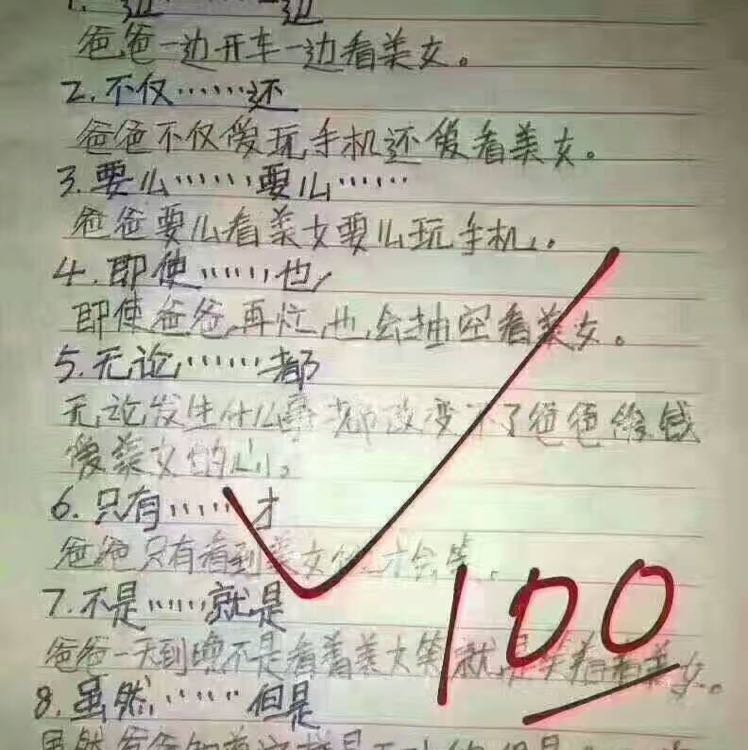 1. 一边……一边
爸爸一边开车一边看美女。
2. 不仅……还
爸爸不仅爱玩手机还爱看美女。
3. 要么……要么……
爸爸要么看美女要么玩手机。
4. 即使……也
即使爸爸再忙,也会抽空看美女。
5. 无论……都
无论发生什么事都改变不了爸爸 钱
爱美女的心。
6. 只有……才
爸爸只有看到美女 才会笑。
7. 不是……就是
爸爸一天到晚不是看着美女笑就是笑着看美女。
8. 虽然……但是
虽然爸爸
100